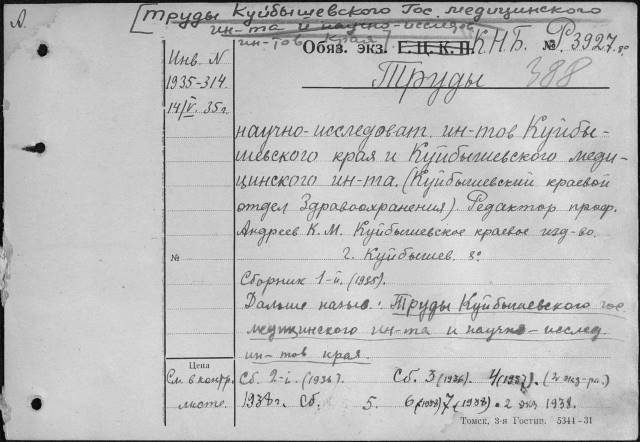 А.
[Труды Куйбышевского Гос. медицинского
ин-та и научно-исслед.
ин-тов края]
Обяз. экз. Г.Ц.К.П. К.Н.Б. № Р3927. 8°
Инв. N
1935-314
14/V. 35г.
Труды 388
научно-исследоват. ин-тов Куйбы-
шевского края и Куйбышевского меди-
цинского ин-та. (Куйбышевский краевой
отдел Здравоохранения). Редактор проф.
Андреев К. М. Куйбышевское краевое изд-во.
№
г. Куйбышев. 8°
Сборник 1-й. (1935).
Дальше назыв.: Труды Куйбышевского гос.
медицинского ин-та и научно-исслед.
ин-тов края.
Цена
См. в контр.
листе.
Сб. 2-й. (1936). Сб. 3 (1936). 4 (1937). (2 экз-ра.)
1938г. Сб. 5. 6 (1938) 7 (1938). 2 экз 1938.
Томск, 3-я Гостип. 5344-31